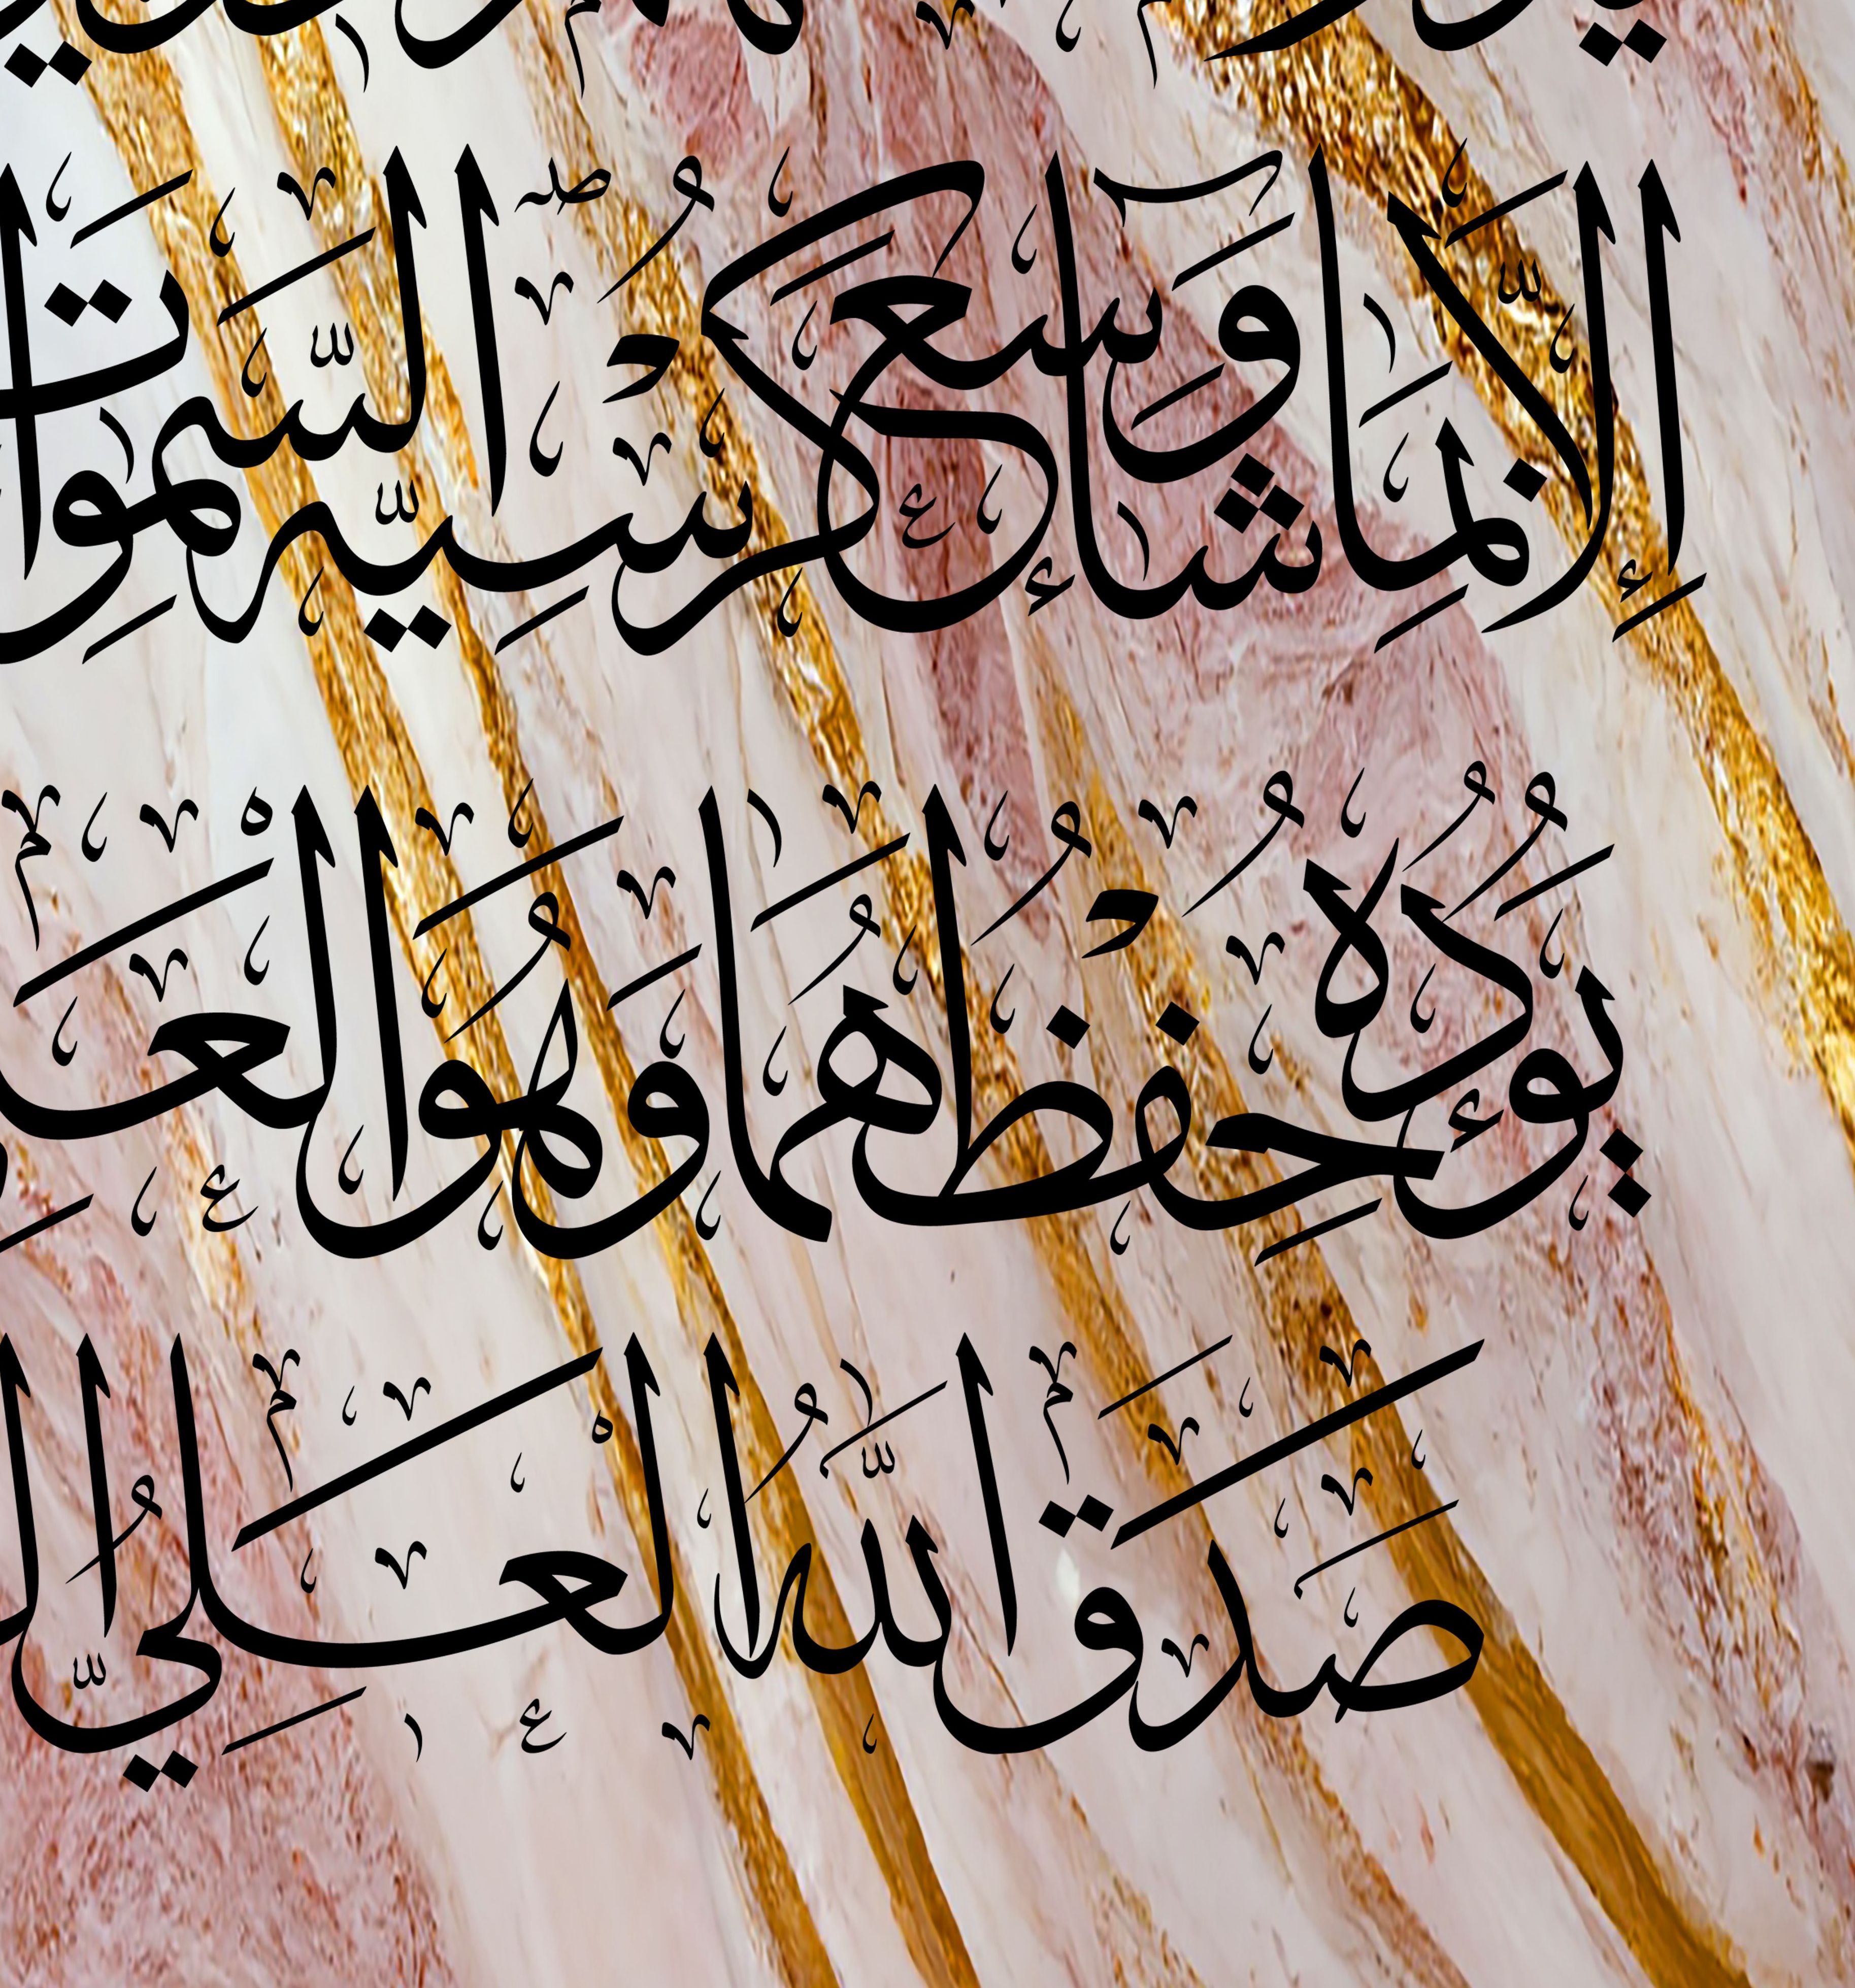 إِلَّا بِمَا شَآءَ وَسِعَ كُرْسِيُّهُ السَّمٰوٰتِ
يَؤُدُهُ حِفْظُهُمَا وَهُوَ الْعَـ
صَدَقَ اللّٰهُ الْعَلِيُّ